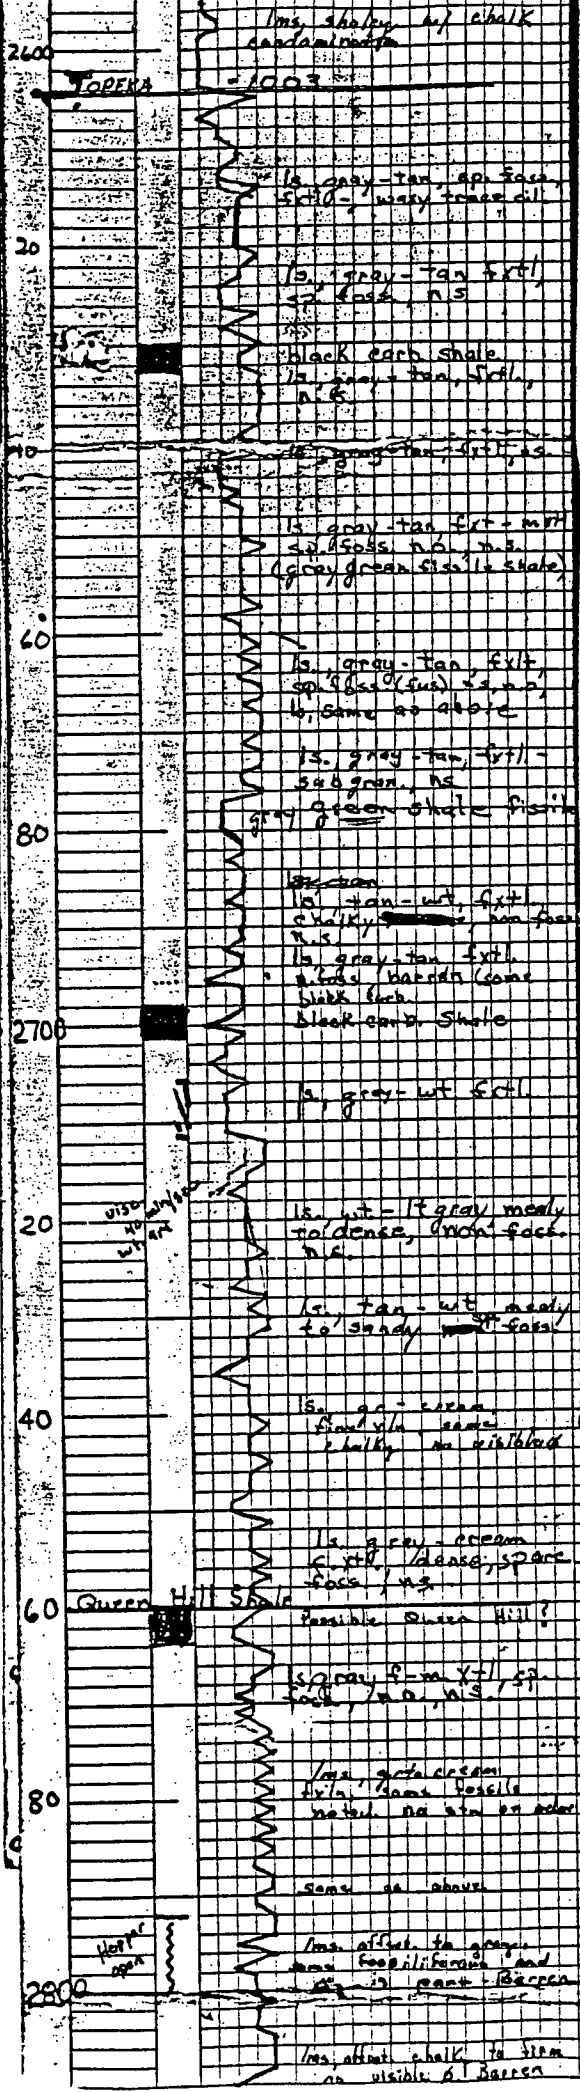 lms, shaley w/ chalk
contamination
2600
TOPEKA -1003
ls, gray-tan, sp. foss,
fxtl-, waxy trace oil
20
ls, gray-tan fxtl,
sp. foss, n.s
black carb shale
ls, gray-tan, fxtl.,
n.s.
40
ls, gray-tan, fxtl, ns.
ls, gray-tan, fxt-mxt
sp. foss n.o., n.s.
(gray green fissile shale)
60
ls, gray-tan, fxlt,
sp. foss (fus) n.o,
ls, same as above
ls. gray-tan, fxtl.-
subgran., ns
gray green shale fissile
80
ls, tan-wt, fxtl,
chalky, non foss
n.s.
ls gray-tan fxtl.
n.foss, barren (some
black carb.
black carb. shale
2700
ls, grey-wt fxtl.
visc
40 min/sec
wt
20
ls, wt-lt gray mealy
to dense, non foss.
n.s.
ls., tan-wt mealy
to sandy foss.
40
ls. gr-cream,
fine xln, some
chalky no visible ø
ls grey-cream
xtl /dense, spare
foss, ns.
Queen Hill Shale
60
Possible Queen Hill?
ls, gray, f-m xtl, sp.
foss, n.o., n.s.
lms, gr to cream
fxln, some fossils
noted. no stn or odor
80
same as above
Hopper
open
lms. offwt. to gray,
some fossiliferous and
Barren
2800
lms, offwt chalk. to firm
no visible ø Barren